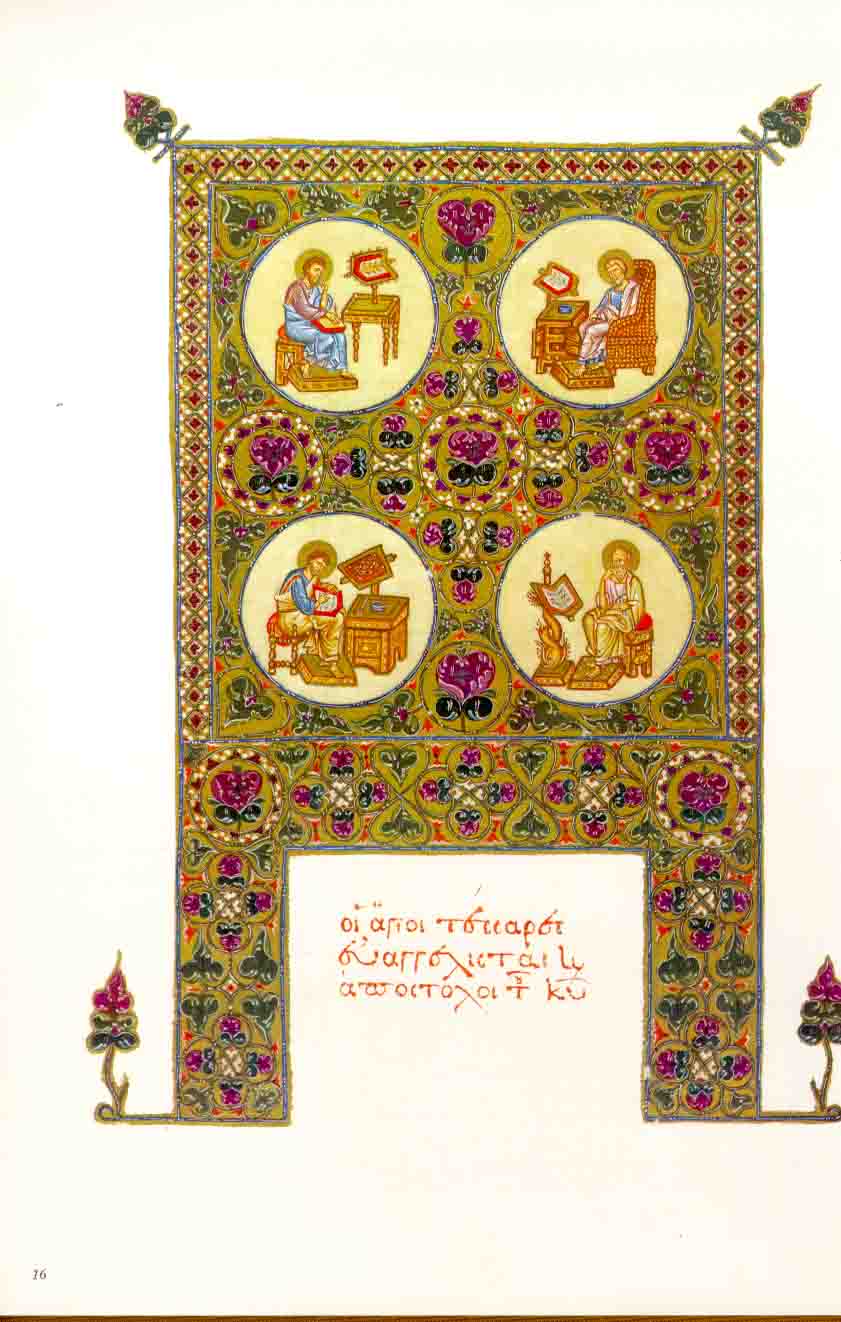 οἱ ἅγιοι τέσσαρες
εὐαγγελισταὶ καὶ
ἀπόστολοι τ κυ
16